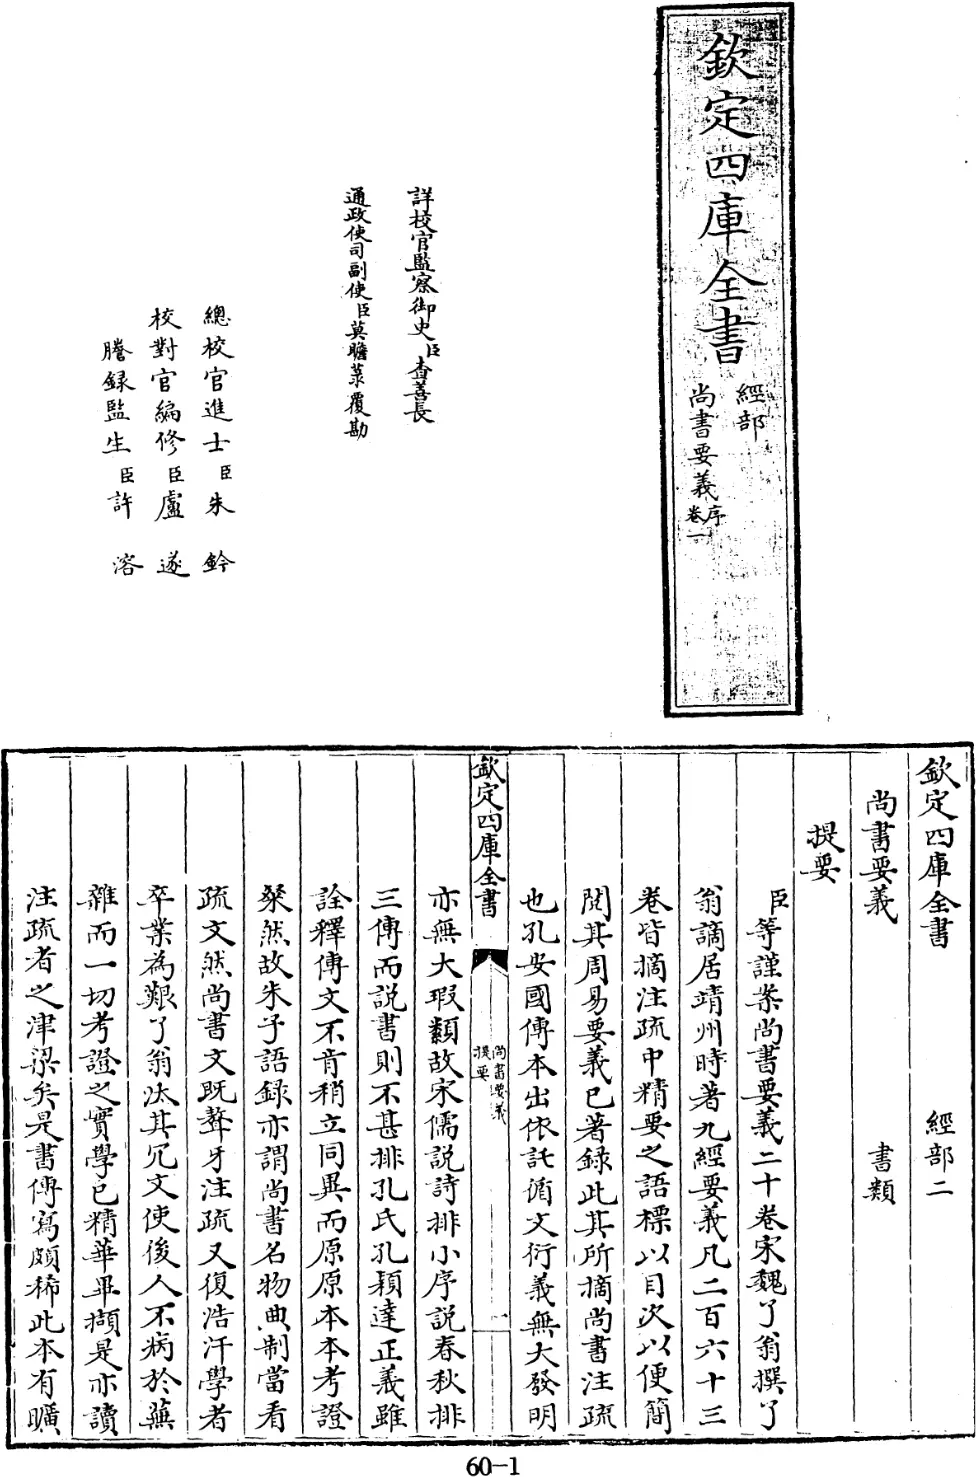 欽定四庫全書
經部
尚書要義
序
卷一
詳校官監察御史臣查善長
通政使司副使臣莫瞻菉覆勘
總校官進士臣朱鈐
校對官編修臣盧遂
謄録監生臣許溶
欽定四庫全書 經部二
尚書要義 書類
提要
臣等謹案尚書要義二十卷宋魏了翁撰了
翁謫居靖州時著九經要義凡二百六十三
卷皆摘注疏中精要之語標以目次以便簡
閱其周易要義已著録此其所摘尚書注疏
也孔安國傳本出依託循文衍義無大發明
欽定四庫全書
尚書要義
提要
一
亦無大瑕纇故宋儒説詩排小序説春秋排
三傳而説書則不甚排孔氏孔穎達正義雖
詮釋傳文不肯稍立同異而原原本本考證
粲然故朱子語録亦謂尚書名物典制當看
疏文然尚書文既聱牙注疏又復浩汗學者
卒業為艱了翁汰其冗文使後人不病於蕪
雜而一切考證之實學已精華畢擷是亦讀
注疏者之津梁矣是書傳寫頗稀此本有曠
60-1